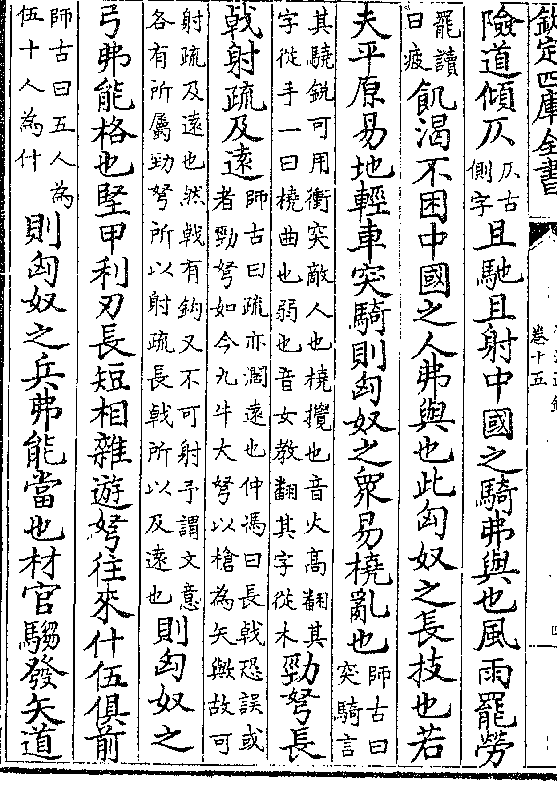 欽定四庫全書
卷十五
四
險道傾仄仄古側字且馳且射中國之騎弗與也風雨罷勞
罷讀曰疲飢渴不困中國之人弗與也此匈奴之長技也若
夫平原易地輕車突騎則匈奴之衆易橈亂也師古曰突騎言
其驍銳可用衝突敵人也橈攪也音火高翻其字從手一曰橈曲也弱也音女教翻其字從木勁弩長
戟射疏及遠師古曰疏亦濶遠也仲馮曰長戟恐誤或者勁弩如今九牛大弩以槍為矢歟故可
射疏及遠也然戟有鈎又不可射予謂文意各有所屬勁弩所以射疏長戟所以及遠也則匈奴之
弓弗能格也堅甲利刃長短相雜遊弩往來什伍俱前
師古曰五人為伍十人為什則匈奴之兵弗能當也材官騶發矢道